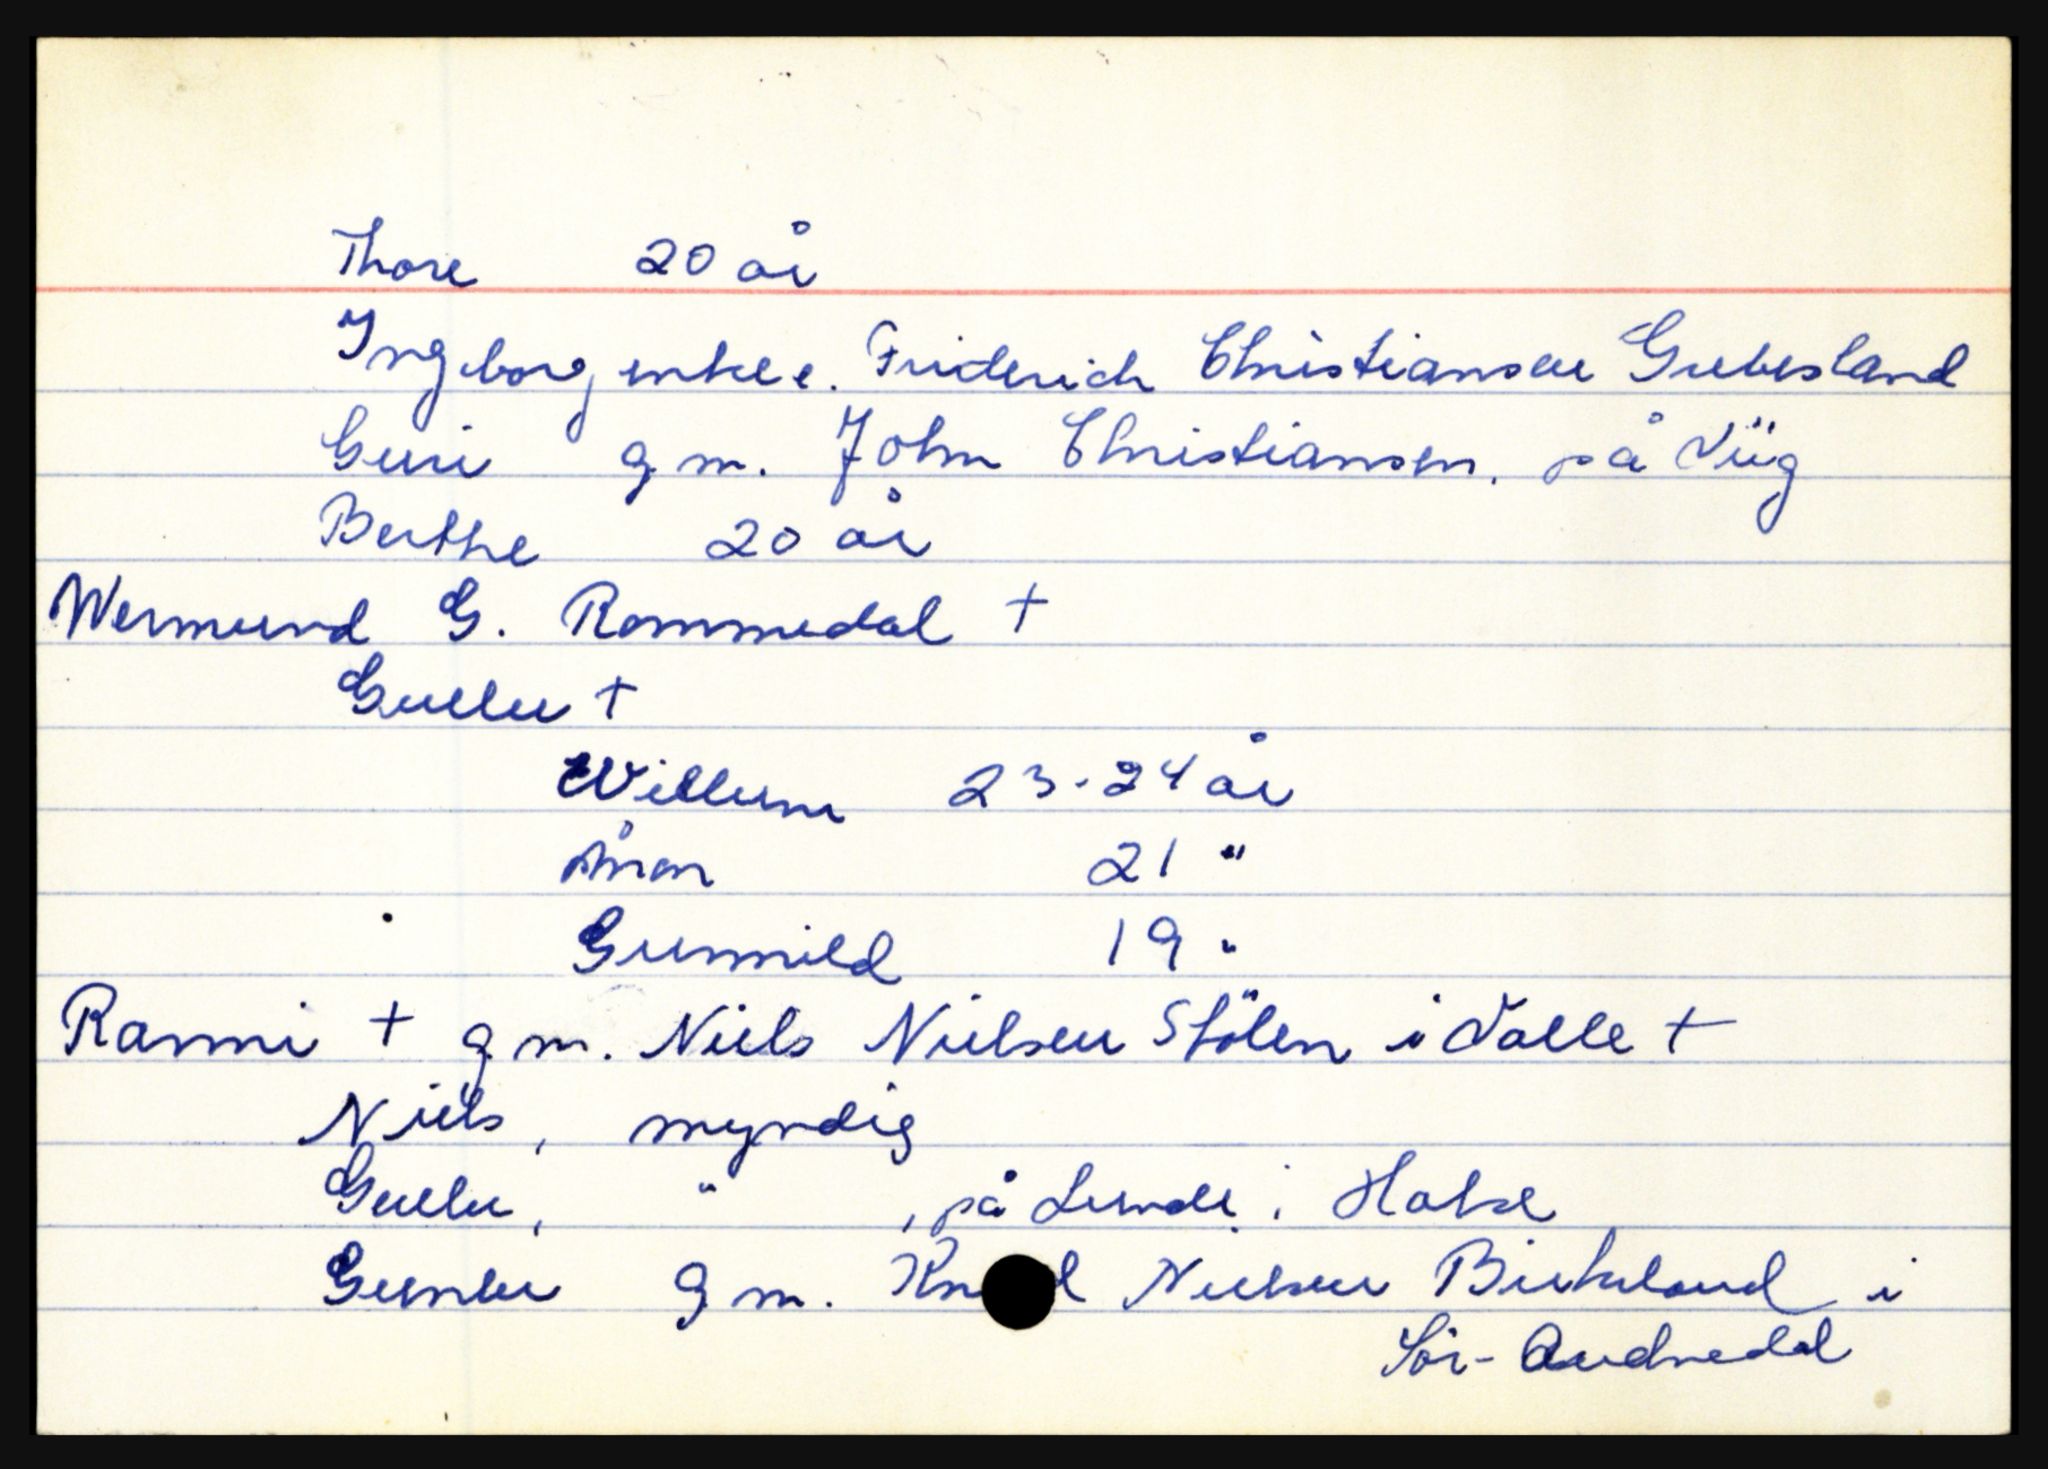 Thore 20 år
Ingeborg enke e. Friderich Christiansen Grebesland
Guri g m. John Christiansen, på Viig
Berthe 20 år
Wermund G. Rommedal +
Gullu +
Willum 23-24 år
Ånon 21 "
Gunnild 19 "
Ranni + g m. Niels Nielsen Stölen i Valle +
Niels, myndig
Gullu, " , på Lunde i
Gunbu g m. Knud Nielsen Birkeland i
Sör-Audnedal